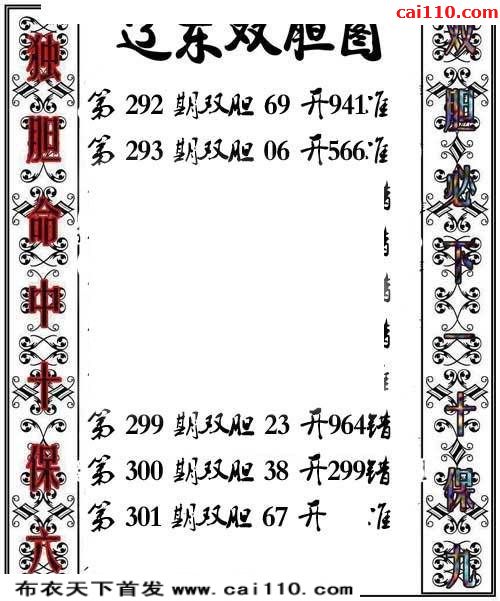 cai110.com
辽东双胆图
独胆命中十保六
双胆必下一十保九
第 292 期双胆 69 开941准
第 293 期双胆 06 开566准
错
错
错
错
准
第 299 期双胆 23 开964错
第 300 期双胆 38 开299错
第 301 期双胆 67 开 准
布衣天下首发 www.cai110.com